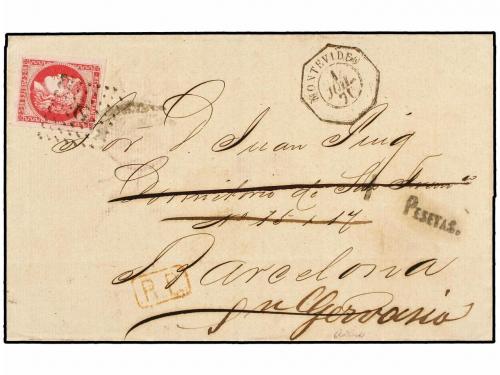 MONTEVIDEO
1
JUIL.
71
Sor D. Juan Puig
Dormitorio de San Fran.co
Nº 15 y 17
PESETAS.
Barcelona
P.P.
Sn Gervasio